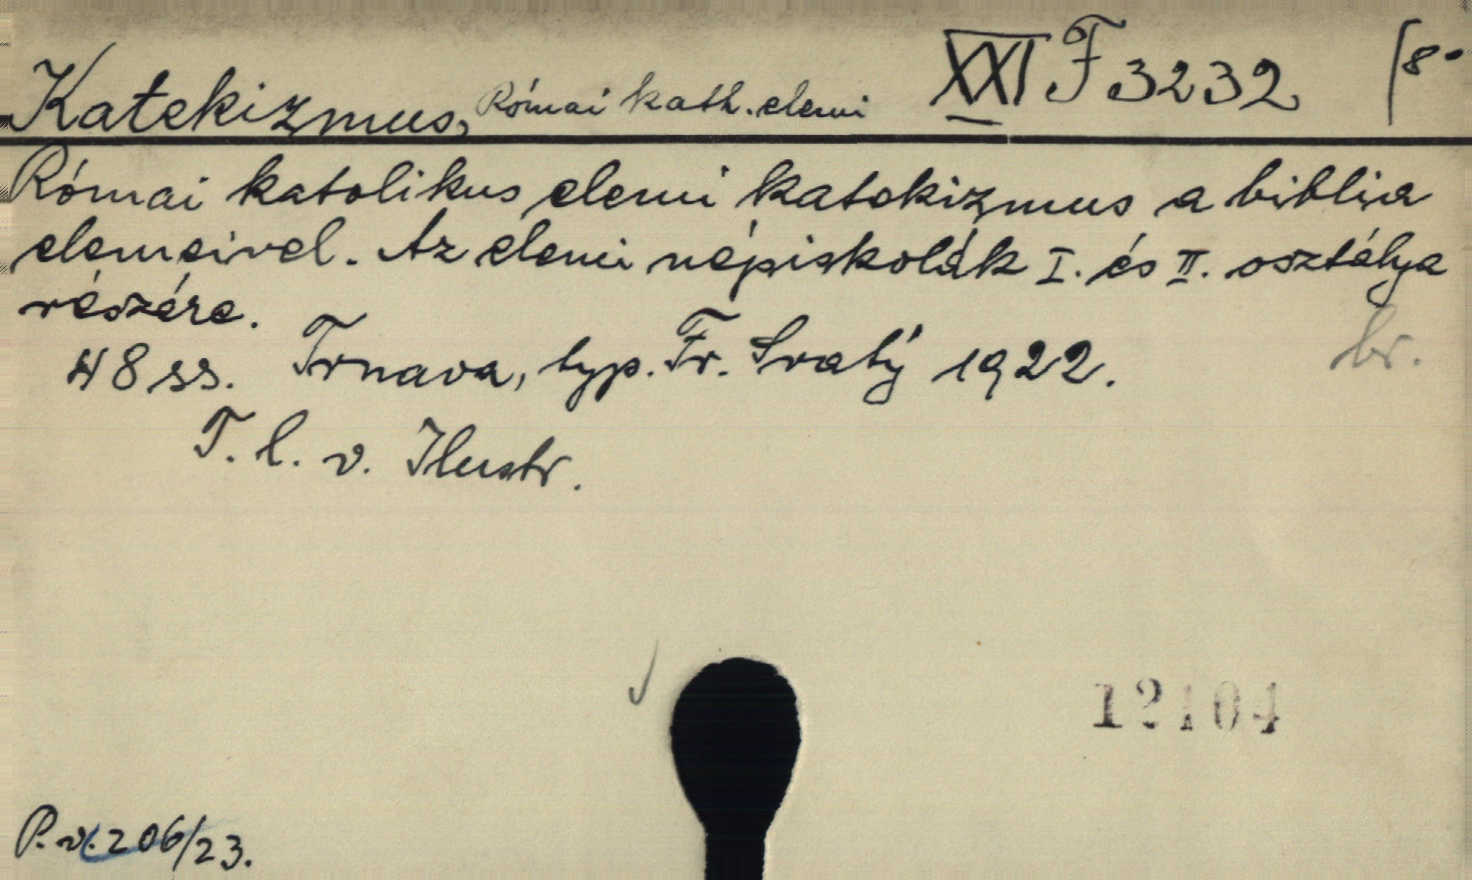 Katekizmus, Római kath. elemi XXI F 3232 [8°
Római katolikus elemi katekizmus a biblia
elemeivel. Az elemi népiskolák I. és II. osztálya
részére.
48 ss. Trnava, typ. Fr. Svatý 1922. br.
T. l. v. Ilustr.
12104
P. v. 206/23.